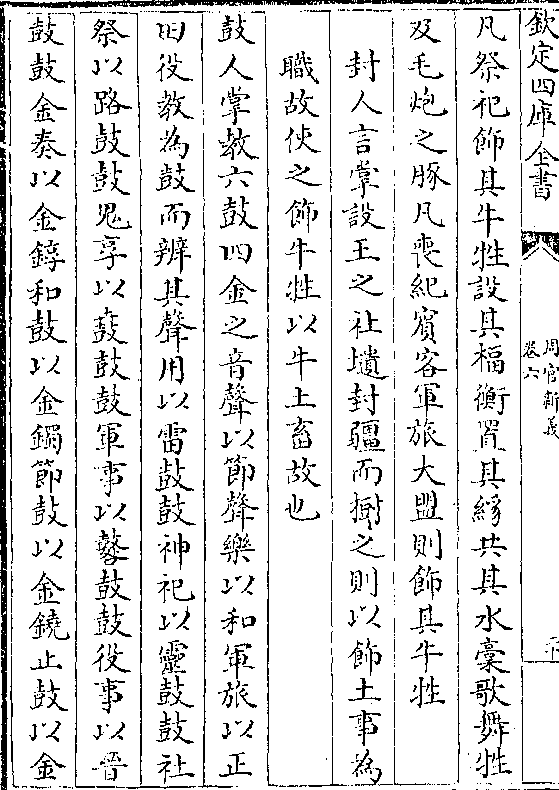 欽定四庫全書
周官新義
卷六
凡祭祀飾其牛牲設其楅衡置其絼共其水稾歌舞牲
及毛炮之豚凡喪紀賓客軍旅大盟則飾其牛牲
封人言掌設王之社壝封疆而樹之則以飾土事為
職故使之飾牛牲以牛土畜故也
鼓人掌教六鼓四金之音聲以節聲樂以和軍旅以正
田役教為鼓而辨其聲用以雷鼓鼓神祀以靈鼓鼓社
祭以路鼓鼓鬼享以鼖鼓鼓軍事以鼛鼓鼓役事以晉
鼓鼓金奏以金錞和鼓以金鐲節鼓以金鐃止鼓以金